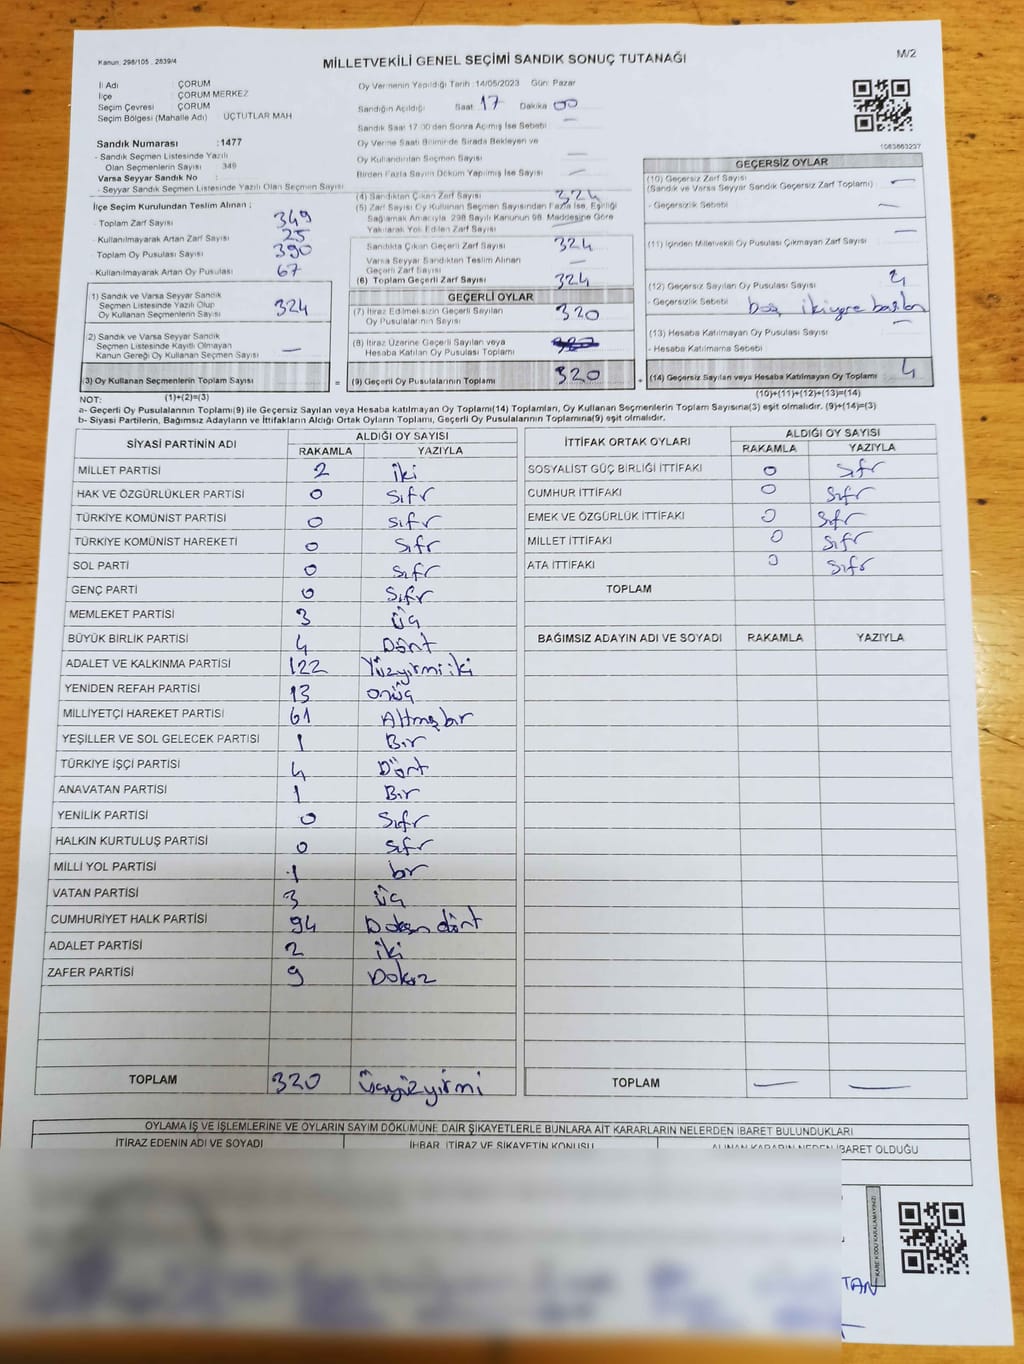 Kanun: 298/105 , 2839/4
MİLLETVEKİLİ GENEL SEÇİMİ SANDIK SONUÇ TUTANAĞI
M/2
İl Adı : ÇORUM
İlçe : ÇORUM MERKEZ
Seçim Çevresi : ÇORUM
Seçim Bölgesi (Mahalle Adı) : ÜÇTUTLAR MAH
Sandık Numarası : 1477
- Sandık Seçmen Listesinde Yazılı
Olan Seçmenlerin Sayısı : 349
Varsa Seyyar Sandık No :
- Seyyar Sandık Seçmen Listesinde Yazılı Olan Seçmen Sayısı
Oy Vermenin Yapıldığı Tarih : 14/05/2023 Gün: Pazar
Sandığın Açıldığı Saat 17 Dakika 00
Sandık Saat 17:00'den Sonra Açılmış İse Sebebi —
Oy Verme Saati Bitiminde Sırada Bekleyen ve
Oy Kullandırılan Seçmen Sayısı —
Birden Fazla Sayım Döküm Yapılmış İse Sayısı —
1083863237
İlçe Seçim Kurulundan Teslim Alınan ;
- Toplam Zarf Sayısı 349
- Kullanılmayarak Artan Zarf Sayısı 25
- Toplam Oy Pusulası Sayısı 390
- Kullanılmayarak Artan Oy Pusulası 67
1) Sandık ve Varsa Seyyar Sandık
Seçmen Listesinde Yazılı Olup
Oy Kullanan Seçmenlerin Sayısı 324
2) Sandık ve Varsa Seyyar Sandık
Seçmen Listesinde Kayıtlı Olmayan
Kanun Gereği Oy Kullanan Seçmen Sayısı —
(3) Oy Kullanan Seçmenlerin Toplam Sayısı =
(1)+(2)=(3)
(4) Sandıktan Çıkan Zarf Sayısı 324
(5) Zarf Sayısı Oy Kullanan Seçmen Sayısından Fazla İse, Eşitliği
Sağlamak Amacıyla, 298 Sayılı Kanunun 98. Maddesine Göre
Yakılarak Yok Edilen Zarf Sayısı —
Sandıkta Çıkan Geçerli Zarf Sayısı 324
Varsa Seyyar Sandıktan Teslim Alınan
Geçerli Zarf Sayısı —
(6) Toplam Geçerli Zarf Sayısı 324
GEÇERLİ OYLAR
(7) İtiraz Edilmeksizin Geçerli Sayılan
Oy Pusulalarının Sayısı 320
(8) İtiraz Üzerine Geçerli Sayılan veya
Hesaba Katılan Oy Pusulası Toplamı
(9) Geçerli Oy Pusulalarının Toplamı 320 +
GEÇERSİZ OYLAR
(10) Geçersiz Zarf Sayısı
(Sandık ve Varsa Seyyar Sandık Geçersiz Zarf Toplamı) —
- Geçersizlik Sebebi —
(11) İçinden Milletvekili Oy Pusulası Çıkmayan Zarf Sayısı —
(12) Geçersiz Sayılan Oy Pusulası Sayısı 4
- Geçersizlik Sebebi boş, iki yere basılan
(13) Hesaba Katılmayan Oy Pusulası Sayısı —
- Hesaba Katılmama Sebebi
(14) Geçersiz Sayılan veya Hesaba Katılmayan Oy Toplamı 4
(10)+(11)+(12)+(13)=(14)
NOT:
a- Geçerli Oy Pusulalarının Toplamı(9) ile Geçersiz Sayılan veya Hesaba katılmayan Oy Toplamı(14) Toplamları, Oy Kullanan Seçmenlerin Toplam Sayısına(3) eşit olmalıdır. (9)+(14)=(3)
b- Siyasi Partilerin, Bağımsız Adayların ve İttifakların Aldığı Ortak Oyların Toplamı, Geçerli Oy Pusulalarının Toplamına(9) eşit olmalıdır.
SİYASİ PARTİNİN ADI ALDIĞI OY SAYISI
RAKAMLA YAZIYLA
MİLLET PARTİSİ 2 iki
HAK VE ÖZGÜRLÜKLER PARTİSİ 0 sıfır
TÜRKİYE KOMÜNİST PARTİSİ 0 sıfır
TÜRKİYE KOMÜNİST HAREKETİ 0 sıfır
SOL PARTİ 0 sıfır
GENÇ PARTİ 0 sıfır
MEMLEKET PARTİSİ 3 üç
BÜYÜK BİRLİK PARTİSİ 4 Dört
ADALET VE KALKINMA PARTİSİ 122 Yüzyirmi iki
YENİDEN REFAH PARTİSİ 13 onüç
MİLLİYETÇİ HAREKET PARTİSİ 61 Altmışbir
YEŞİLLER VE SOL GELECEK PARTİSİ 1 Bir
TÜRKİYE İŞÇİ PARTİSİ 4 Dört
ANAVATAN PARTİSİ 1 Bir
YENİLİK PARTİSİ 0 sıfır
HALKIN KURTULUŞ PARTİSİ 0 sıfır
MİLLİ YOL PARTİSİ 1 bir
VATAN PARTİSİ 3 üç
CUMHURİYET HALK PARTİSİ 94 Doksan dört
ADALET PARTİSİ 2 iki
ZAFER PARTİSİ 9 Dokuz
TOPLAM 320 üçyüzyirmi
İTTİFAK ORTAK OYLARI ALDIĞI OY SAYISI
RAKAMLA YAZIYLA
SOSYALİST GÜÇ BİRLİĞİ İTTİFAKI 0 sıfır
CUMHUR İTTİFAKI 0 sıfır
EMEK VE ÖZGÜRLÜK İTTİFAKI 0 sıfır
MİLLET İTTİFAKI 0 sıfır
ATA İTTİFAKI 0 sıfır
TOPLAM
BAĞIMSIZ ADAYIN ADI VE SOYADI RAKAMLA YAZIYLA
TOPLAM — —
OYLAMA İŞ VE İŞLEMLERİNE VE OYLARIN SAYIM DÖKÜMÜNE DAİR ŞİKAYETLERLE BUNLARA AİT KARARLARIN NELERDEN İBARET BULUNDUKLARI
İTİRAZ EDENİN ADI VE SOYADI İHBAR, İTİRAZ VE ŞİKAYETİN KONUSU ALINAN KARARIN NEDEN İBARET OLDUĞU
KARE KODU KARALAMAYINIZ!
TAN